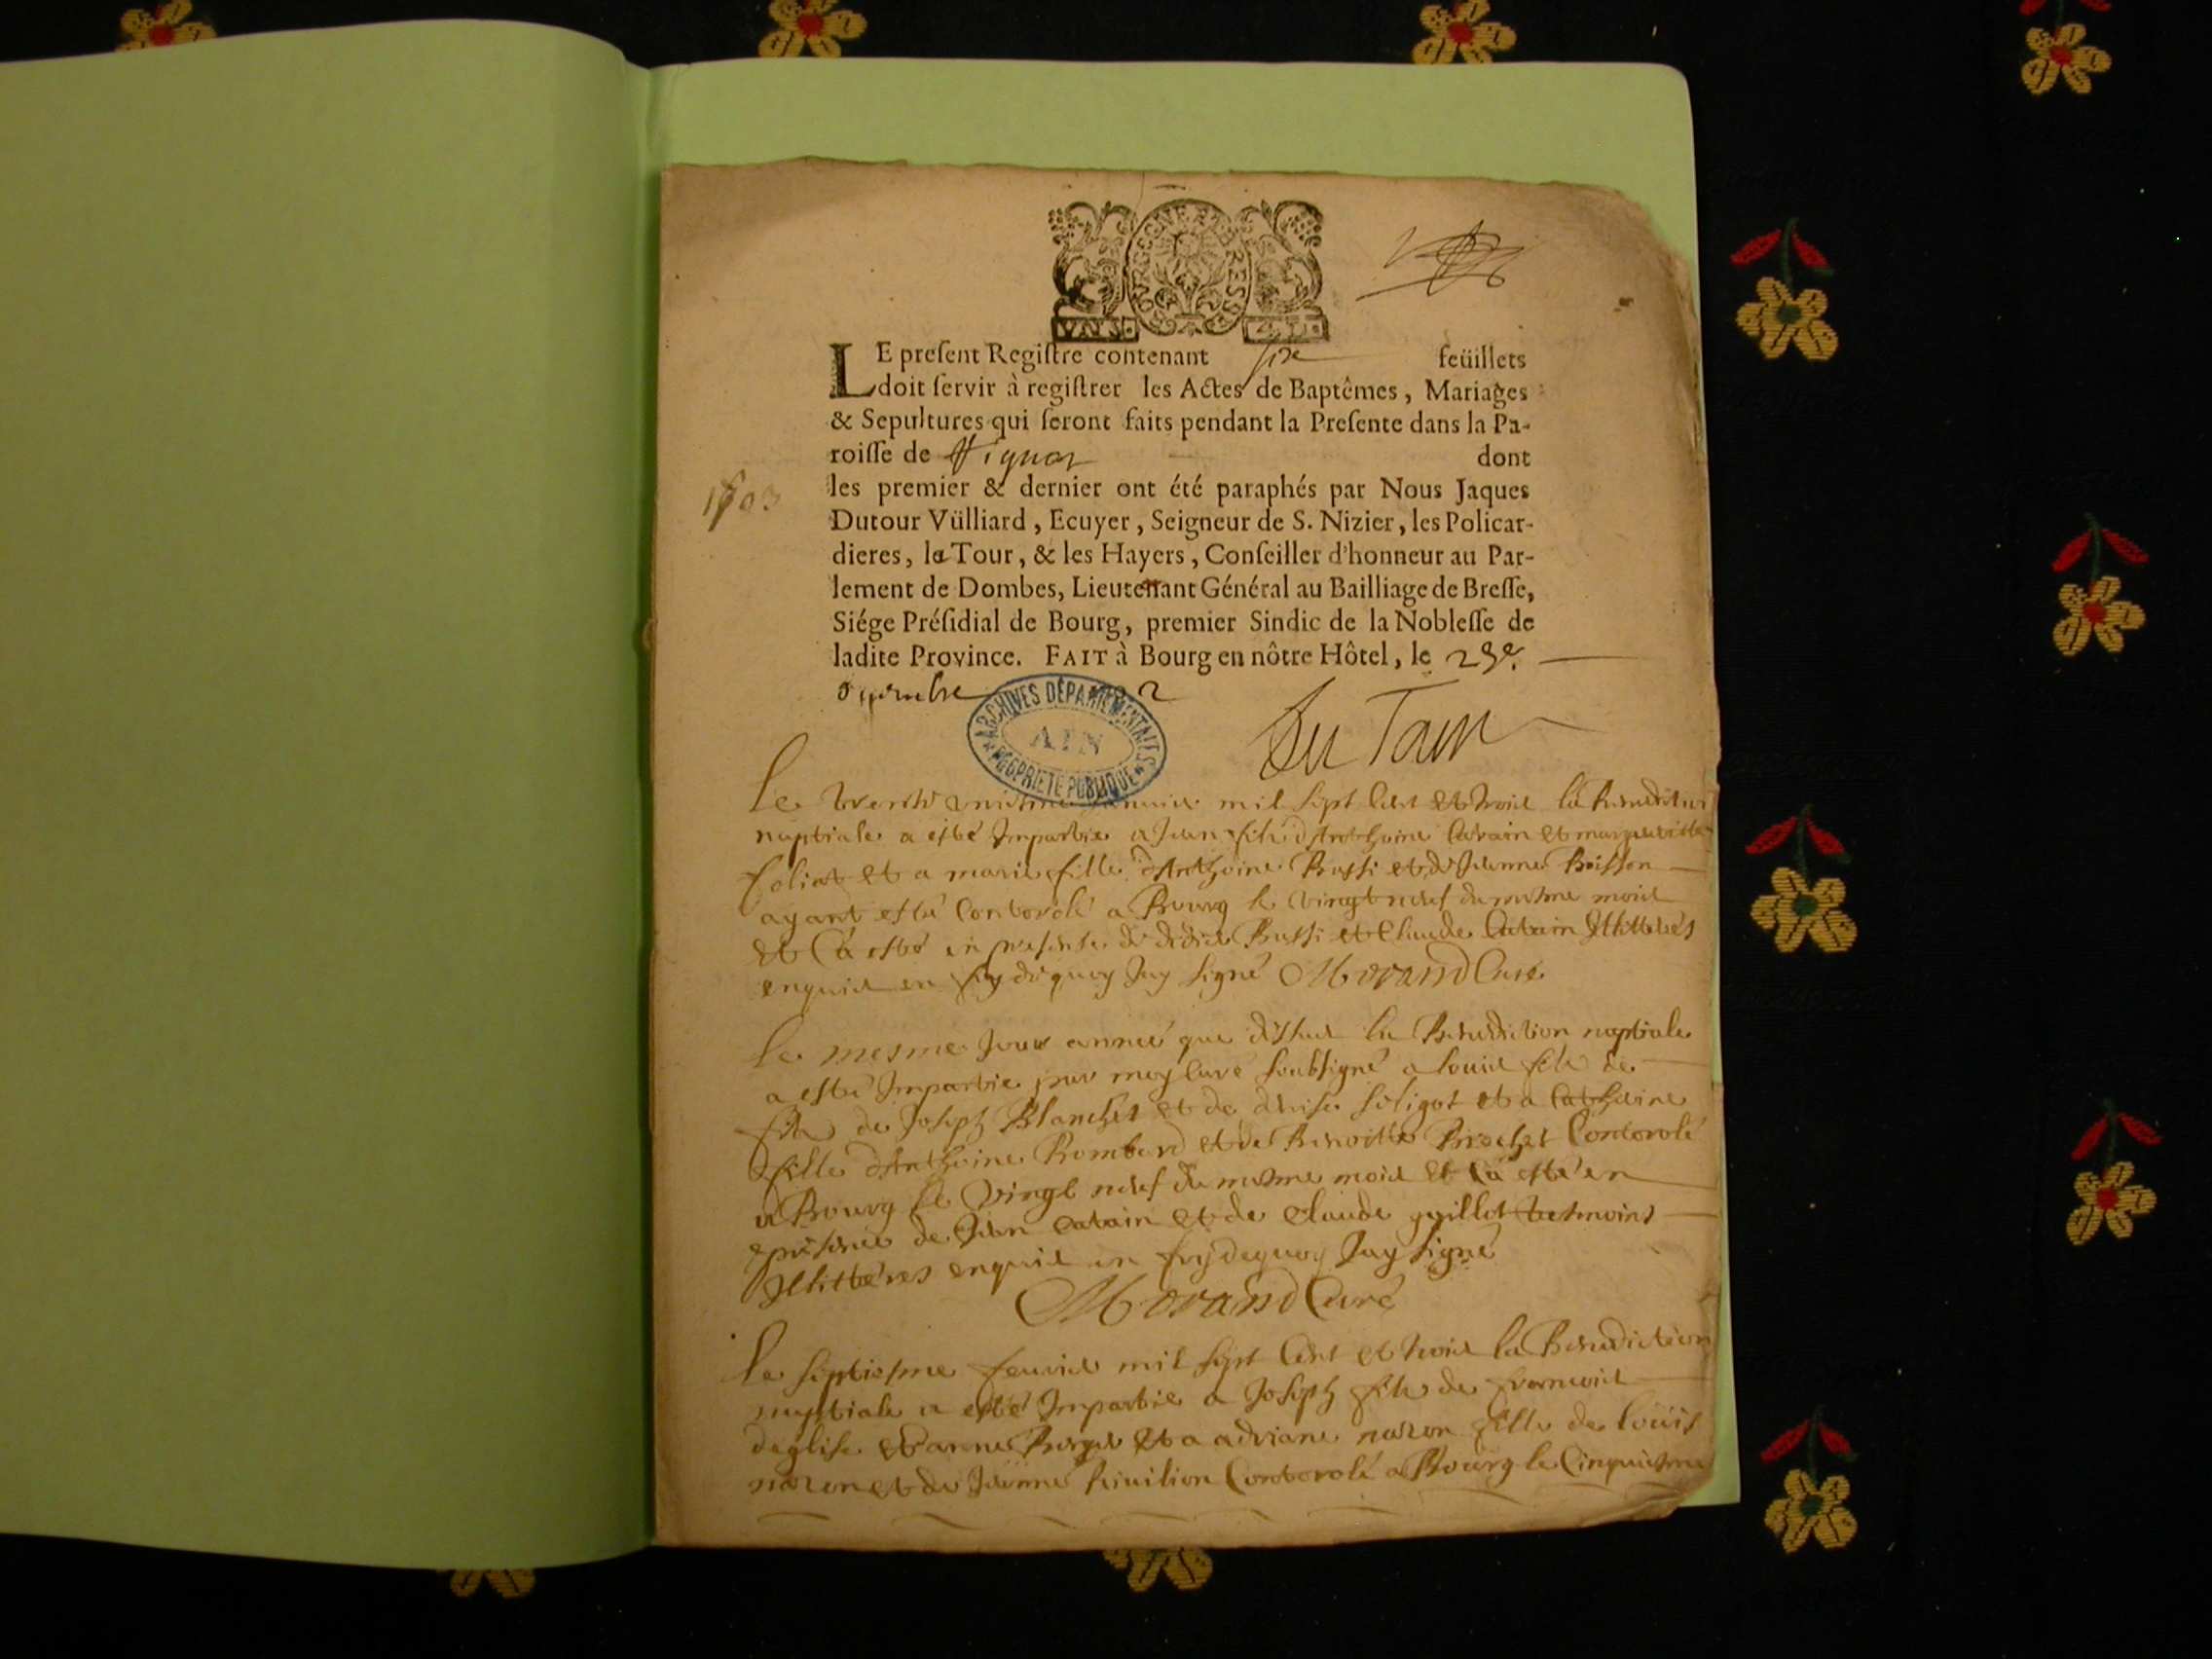 BOVRGOGNE ET BRESSE
LE preſent Regiſtre contenant ſix feüillets
doit ſervir à regiſtrer les Actes de Baptêmes, Mariages
& Sepultures qui ſeront faits pendant la Preſente dans la Pa-
roiſſe de dont
1703
les premier & dernier ont été paraphés par Nous Jaques
Dutour Vülliard, Ecuyer, Seigneur de S. Nizier, les Policar-
dieres, la Tour, & les Hayers, Conſeiller d'honneur au Par-
lement de Dombes, Lieutenant Général au Bailliage de Breſſe,
Siége Préſidial de Bourg, premier Sindic de la Nobleſſe de
ladite Province. FAIT à Bourg en nôtre Hôtel, le
2
ARCHIVES DÉPARTEMENTALES
AIN
PROPRIÉTÉ PUBLIQUE
Du Tour
Le trente uniesme janvier mil sept cent et trois la Benediction
nuptiale a esté Impartie a Jean fils d'Anthoine Catain et marguerite
et a marie fille d'Anthoine Bussi et de Jeanne Buisson
ayant esté Contorolé a Bourg le vingt neuf du mesme mois
et Ca esté en presence de didier Bussi et Claude Catain Illitterés
enquis en foy de quoy Jay signé Morand Curé
Le mesme Jour année que dessus la Benediction nuptiale
a esté Impartie par moy Curé soubsigné a Louis fils de
fils de Joseph Blanchet et de et a Catherine
fille d'Anthoine Rombard et de Benoitte Brochet Contorolé
a Bourg le vingt neuf du mesme mois et Ca esté en
presence de Jean Catain et de Claude guillot tesmoins
Illitteres enquis en foy de quoy Jay signé
Morand Curé
Le septiesme fevrier mil sept Cent et trois la Benediction
nuptiale a esté Impartie a Joseph fils de francois
deglise et anne et a adriane nason fille de Loüis
nason et de Jeanne Contorolé a Bourg le Cinquiesme